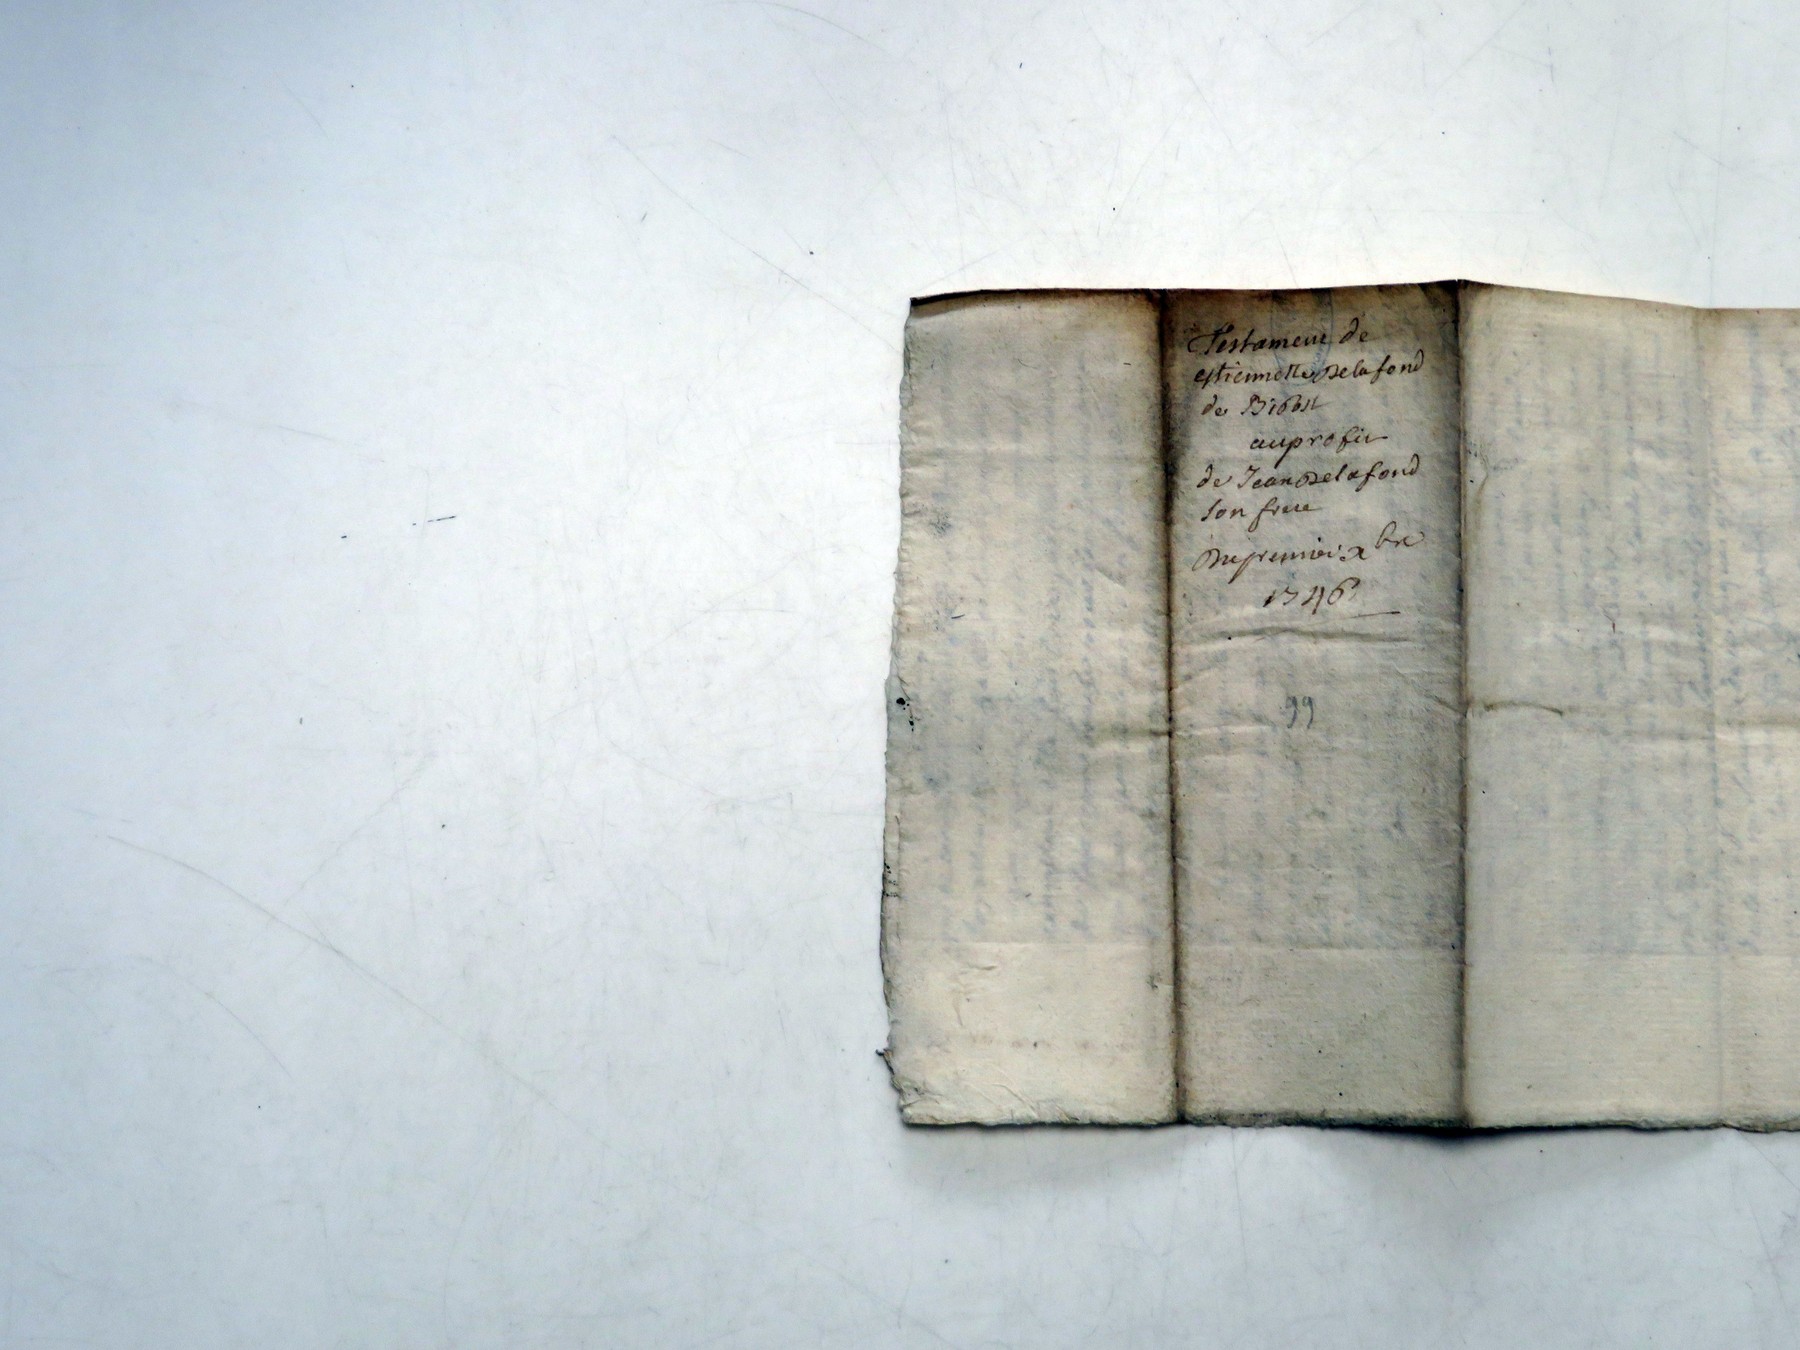 Testament de
estiennette Delafond
de Bibost
au profit
de Jean Delafond
son frere
Du premier xbre
1746
99